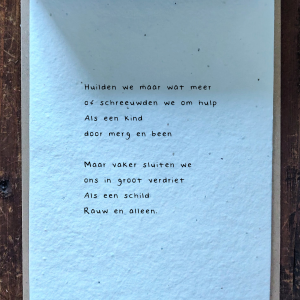 Huilden we maar wat meer
of schreeuwden we om hulp
Als een kind
door merg en been
Maar vaker sluiten we
ons in groot verdriet
Als een schild
Rauw en alleen.